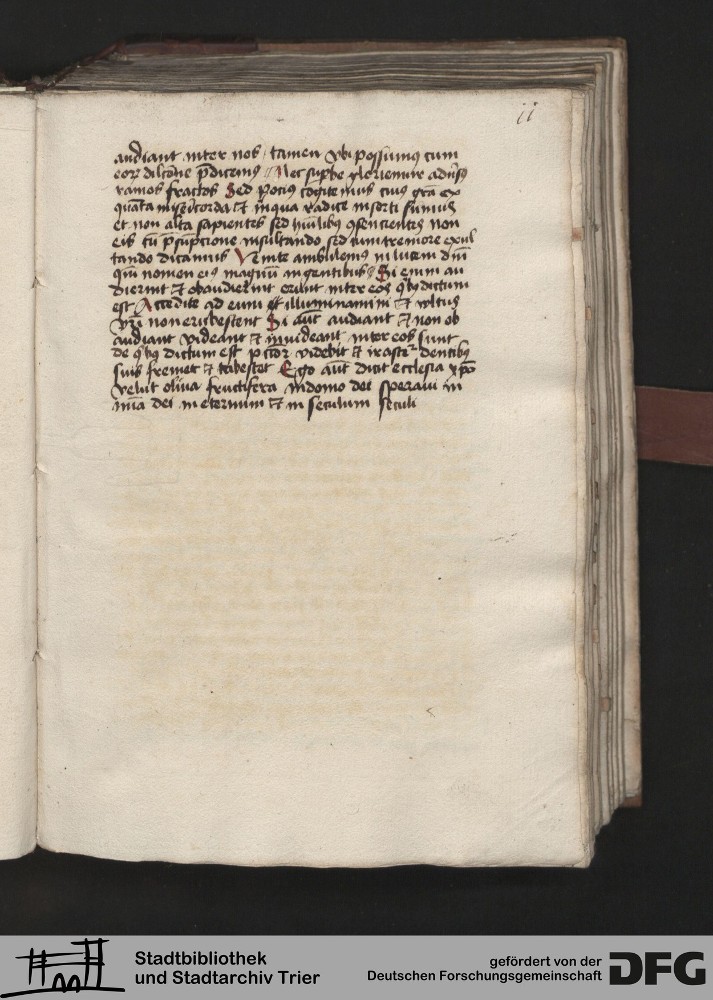 ii
audiant inter nos tamen vbi possumus cum
eorum dilectōne p̄dicemus Nec supbe gloriemur adūsus
ramos fractos Sed pocius cogitemus cuius grā ex
quāta misericordia et in qua radice inserti sumus
et non alta sapientes sed hūilibus ꝯsencientes non
eis cū p̄supcione insultando sed cum tremore exul
tando dicamus Venite ambulemus in lucem dnī
qm̄ nomen eius magnū in gentibus Si enim au
dierint et obaudierint erunt inter eos qbus dictum
est Accedite ad eum et illuminamini et vltus
vrī non erubescent Si aūt audiant et non ob
audiant videant et invideant inter eos sunt
de qbus dictum est pctōr videbit et irascetur dentibus
suis fremet et tabescet Ego aūt dicit ecclesia xp̄o
velut oliua fructifera in domo dei speraui in
mīa dei in eternum et in seculum seculi
Stadtbibliothek
und Stadtarchiv Trier
gefördert von der
Deutschen Forschungsgemeinschaft
DFG